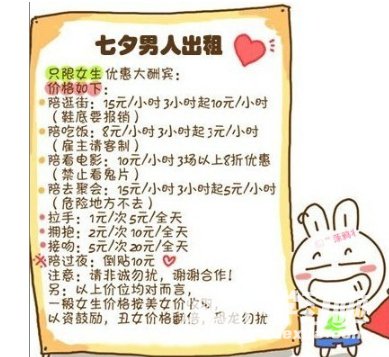 七夕男人出租
只限女生优惠大酬宾:
价格如下:
陪逛街: 15元/小时3小时起10元/小时
(鞋底要报销)
陪吃饭: 8元/小时3小时起3元/小时
(雇主请客制)
陪看电影: 10元/小时3场以上8折优惠
(禁止看鬼片)
陪去聚会: 15元/小时3小时起5元/小时
(危险地方不去)
拉手: 1元/次5元/全天
拥抱: 2元/次10元/全天
接吻: 5元/次20元/全天
※陪过夜: 倒贴10元
注意: 请非诚勿扰, 谢谢合作!
另: 以上价位均对而言,
一般女生价格按美女价收取,
以资鼓励, 丑女价格翻倍, 恐龙勿扰